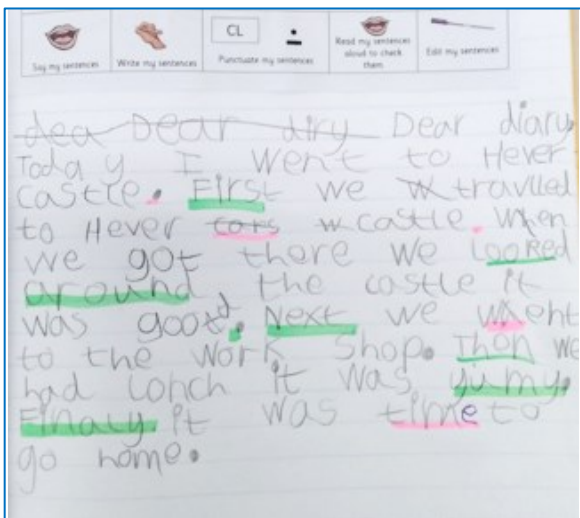 Say my sentences
Write my sentences
CL
Punctuate my sentences
Read my sentences
aloud to check
them.
Edit my sentences
dea Dear diry Dear diary,
Today I went to Hever
castle. First we w travlled
to Hever w castle. when
we got there we looked
around the castle it
was good. Next we whent
to the work shop. Then we
had lonch it was yumy.
Finaly it was time to
go home.